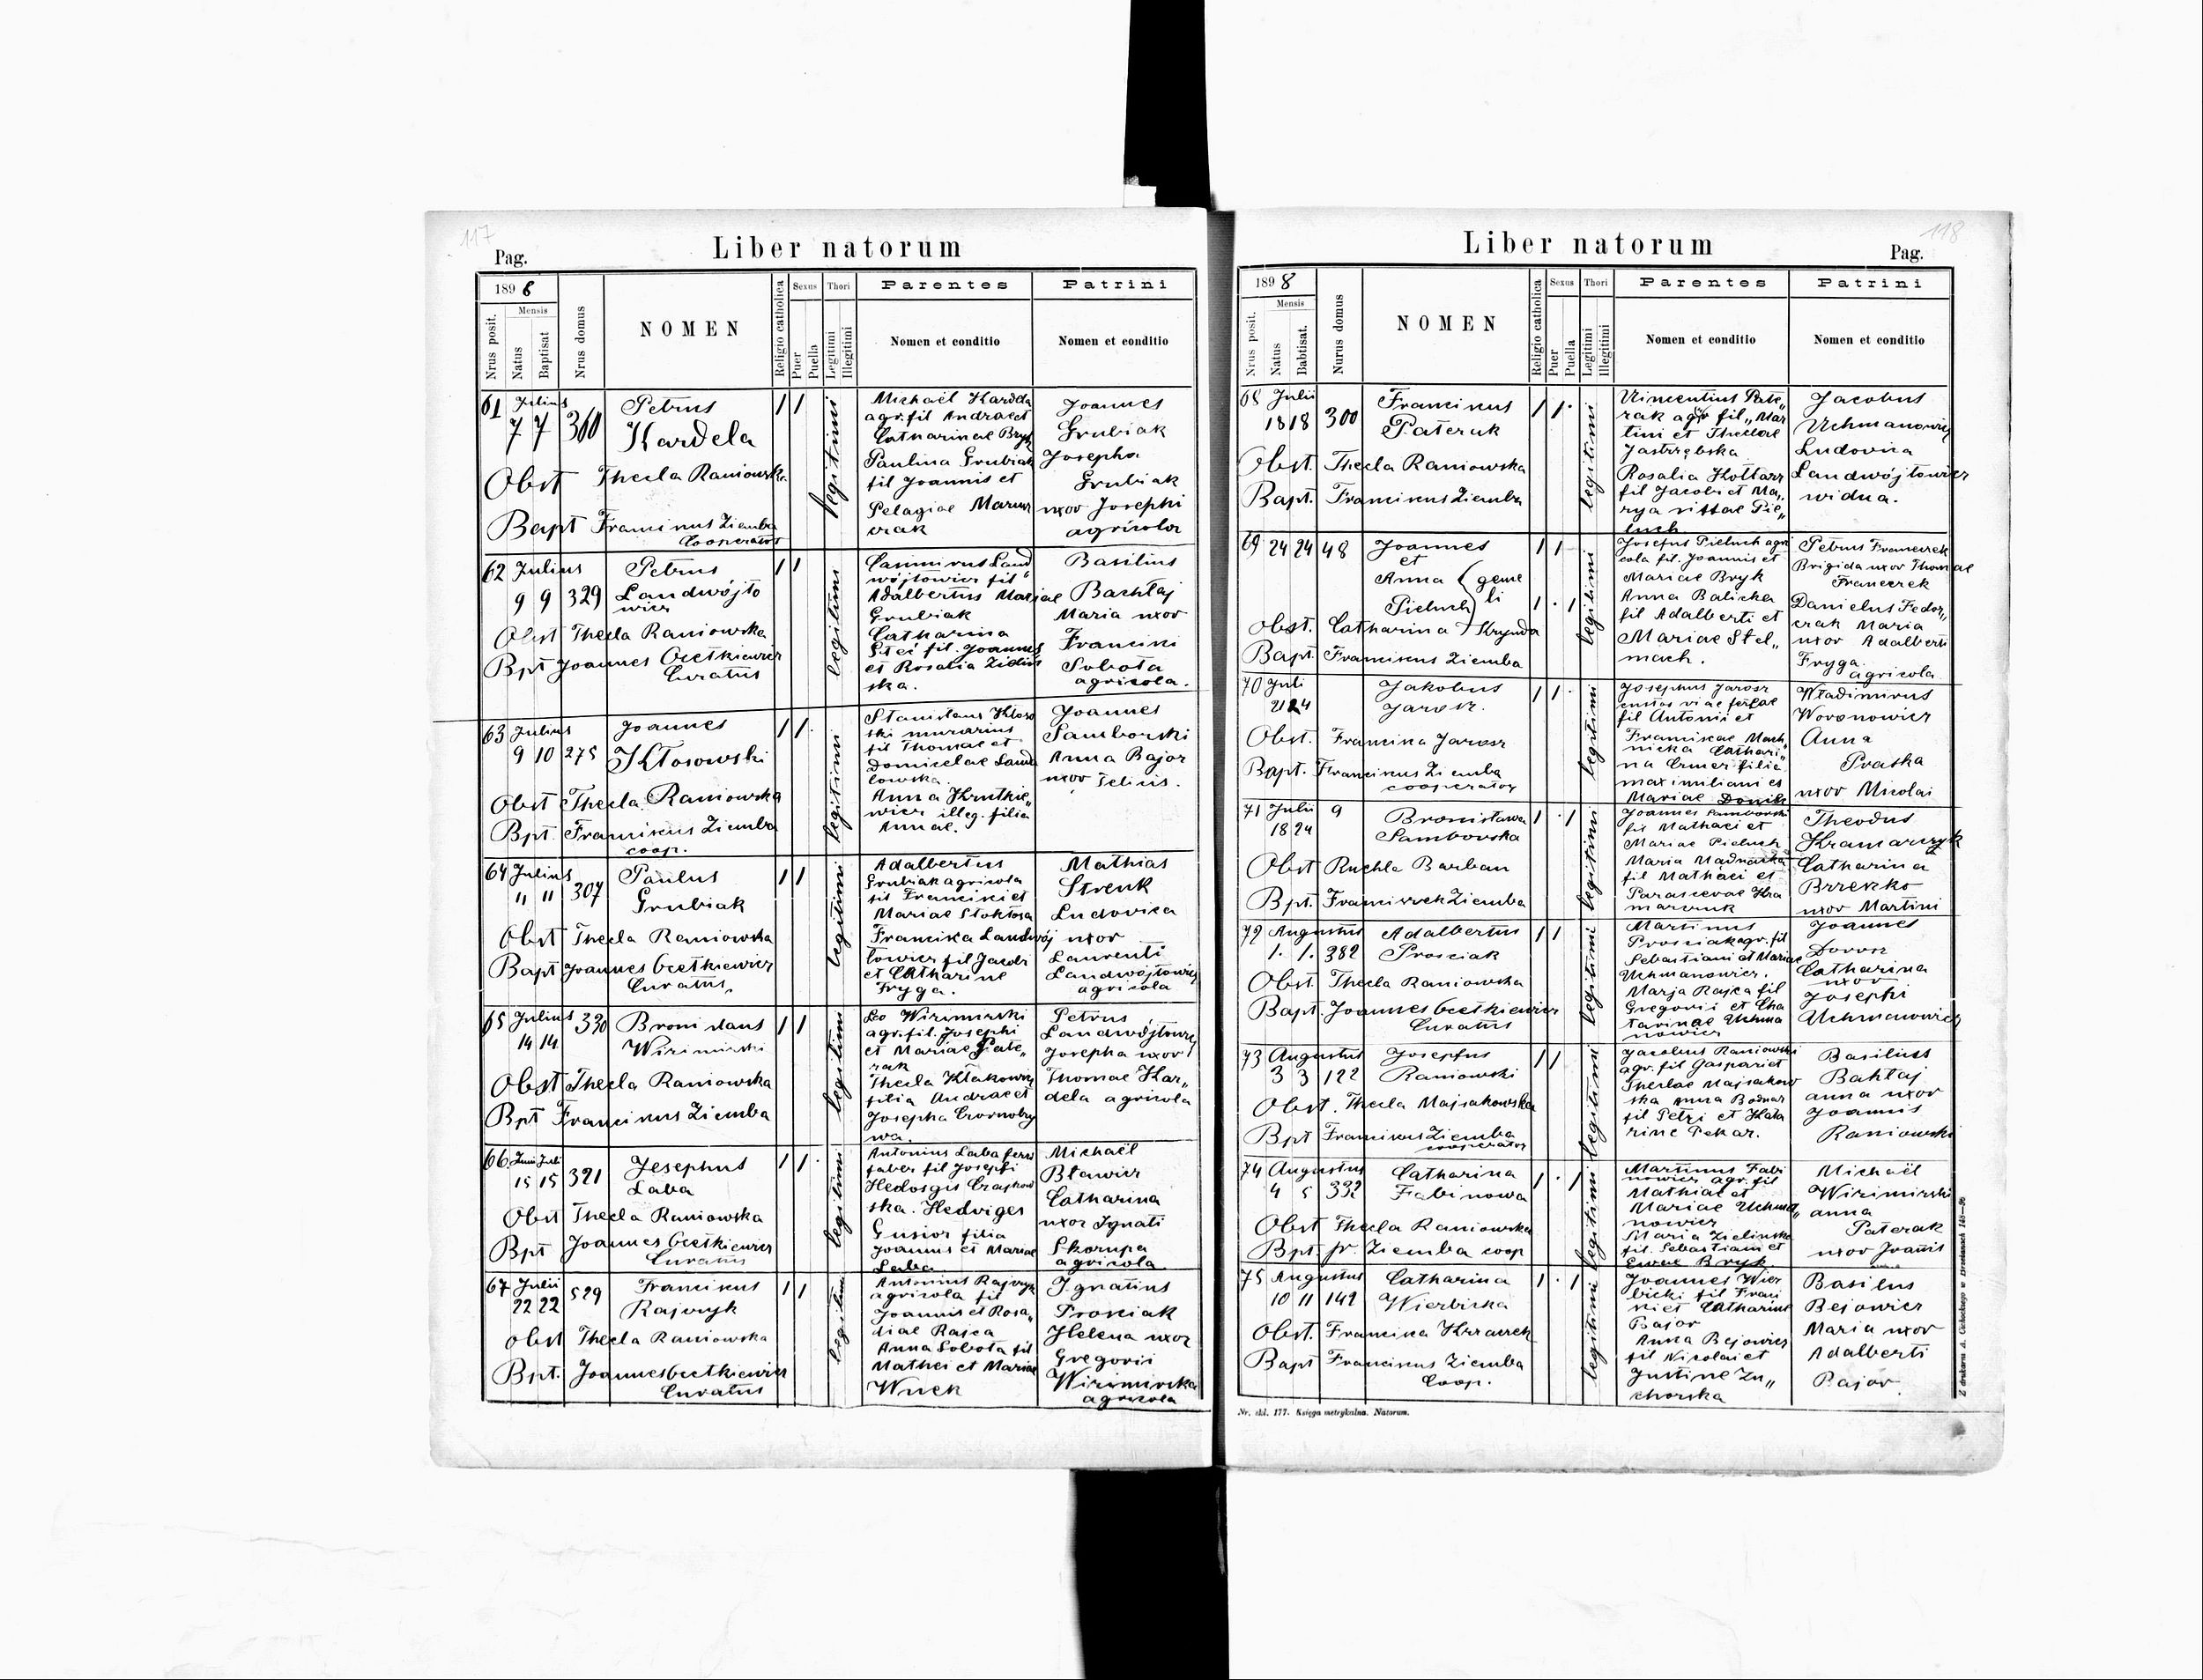 117
Pag.
Liber natorum
1898
Nrus posit.
Mensis
Natus
Baptisat
Nrus domus
NOMEN
Religio catholica
Sexus
Puer
Puella
Thori
Legitimi
Illegitimi
Parentes
Nomen et conditio
Patrini
Nomen et conditio
61 Julius
7 7 360
Petrus
Kardela
1 1
legitimi
Obst Thecla Raniowska
Bapt Franciscus Ziemba
Cooperator
Michaël Kardela
agr. fil Andrae et
Catharinae Bryk
Paulina Grubiak
fil Joannis et
Pelagiae
Joannes
Grubiak
Josepha
Grubiak
uxor Josephi
agricola
62 Julius
9 9 329
Petrus
Landwójto
wicz
1 1
legitimi
Obst Thecla Raniowska
Bpt Joannes
Curatus
Casimirus Land
wójtowicz fil
Adalbertus Mariae
Grubiak
Catharina
Steć fil. Joannes
et Rosalia
ska.
Basilius
Bachtaj
Maria uxor
Francisci
Sobota
agricola.
63 Julius
9 10 275
Joannes
Kłosowski
1 1
legitimi
Obst Thecla Raniowska
Bpt. Franciscus Ziemba
coop.
Stanislaus Kłoso
ski murarius
fil Thomae et
Domicelae
Anna Krutkie„
wicz illeg. filia
Annae.
Joannes
Samborski
Anna Bajor
uxor Felicis.
64 Julius
11 11 307
Paulus
Grubiak
1 1
legitimi
Obst Thecla Raniowska
Bapt Joannes
Curatus,
Adalbertus
Grubiak agricola
fil Francisci et
Mariae Stokłosa
Franciska Landwój
towicz fil Jacobi
et Catharine
Fryga.
Mathias
Strenk
Ludovica
uxor
Laurenti
Landwójtowicz
agricola
65 Julius
14 14
330
Bronislaus
Wizimirski
1 1
legitimi
Obst Thecla Raniowska
Bpt Franciscus Ziemba
Leo Wizimirski
agr. fil. Josephi
et Mariae Pate„
rak
Thecla
filia Andrae et
Josepha Czornobry
wa.
Petrus
Landwójtowicz
Josepha uxor
Thomae Kar„
dela agricola
66 Juli
15 15 321
Jesephus
Laba
1 1
legitimi
Obst Thecla Raniowska
Bpt Joannes
Curatus
Antonius Laba ferri
faber fil Josepfi
ska. Hedviges
Gusior filia
Joannis et Mariae
Laba
Michaël
Bławicz
Catharina
uxor Ignati
Skorupa
agricola
67 Julii
22 22
529
Franciscus
Rajczyk
1 1
legitimi
Obst Thecla Raniowska
Bpt. Joannes
Curatus
Antonius Rajczyk
agricola fil
Joannis et Rosa„
liae Rajca
Anna Sobota fil
Mathei et Mariae
Wnek
Ignatius
Prosciak
Helena uxor
Gregorii
Wizimirska
agricola
118
Liber natorum
Pag.
1898
Nrus posit.
Mensis
Natus
Babtisat.
Nurus domus
NOMEN
Religio catholica
Sexus
Puer
Puella
Thori
Legitimi
Illegitimi
Parentes
Nomen et conditio
Patrini
Nomen et conditio
68 Julii
18 18 300
Franciscus
Paterak
1 1
legitimi
Obst. Thecla Raniowska
Bapt. Franciscus Ziemba
Vincentius Pate„
rak agr fil „Mar
tini et Theclae
Jastrzębska
Rosalia Kottarz
fil Jacobi et Ma„
rya Pie„
luch
Jacobus
Uchmanowicz
Ludovica
Landwójtowicz
vidua.
69 24 24 48
Joannes
et
Anna
Pieluch
geme
li
1 1
1 1
legitimi
Obst. Catharina Krynda
Bapt. Franciscus Ziemba
Josefus Pieluch agri
cola fil. Joannis et
Mariae Bryk
Anna Balicka
fil Adalberti et
Mariae Stel„
mach.
Petrus Francezek
Brigida uxor Thomae
Francezek
Danielus Fedor„
czak Maria
uxor Adalberti
Fryga
agricola
70 Juli
21 24
Jakobus
Jarosz.
1 1
legitimi
Obst. Francisca Jarosz
Bapt. Franciscus Ziemba
cooperator
Josephus Jarosz
custos viae
fil Antonii et
Franciscae Mach
nicka Cathari„
na filia
maximiliani et
Mariae
Wladimirus
Woronowicz
Anna
uxor Nicolai
71 Julii
18 24
9
Bronisława
Samborska
1 1
legitimi
Obst Ruchla Barban
Bpt. Francizek Ziemba
Joannes Samborski
fil Mathaei et
Mariae Pieluch
Maria
fil Mathaei et
Parascevae Kra
marczuk
Theodus
Kramarczyk
Catharina
Brzezko
uxor Martini
72 Augustus
1. 1. 382
Adalbertus
Prosciak
1 1
legitimi
Obst. Thecla Raniowska
Bapt. Joannes
Curatus
Martinus
Prosciak agr. fil
Sebastiani et Mariae
Uchmanowicz.
Marja Rajca fil
Gregorii et Cha
tarinae Uchma
nowicz
Joannes
Dorosz
Catharina
uxor
Josephi
Uchmanowicz
73 Augustus
3 3 122
Josepfus
Raniowski
1 1
legitimi
Obst. Thecla Majsakowska
Bpt Franciscus Ziemba
cooperator
Jacobus Raniowski
agr. fil Gaspari et
Theclae Majsakow
ska Anna Bodnar
fil Petri et Kata
rine Pekar.
Basilius
Bahtaj
anna uxor
Joannis
Raniowski
74 Augustus
4 5 332
Catharina
Fabinowa
1 1
legitimi
Obst Thecla Raniowska
Bpt fr. Ziemba coop
Martinus Fabi
nowicz agr. fil
Mathiae et
Mariae Uchma„
nowicz
Maria Zielinska
fil. Sebastiani et
Ewae Bryk
Michaël
Wizimirski
anna
Paterak
uxor Joanis
75 Augustus
10 11 142
Catharina
Wierbicka
1 1
legitimi
Obst. Francisca Krzaczek
Bapt Franciscus Ziemba
Coop.
Joannes Wier
bicki fil Franci
sci et Catharine
Bajor
Anna Bejowicz
fil Nicolai et
Justine Zu„
chorska
Basilus
Bejowicz
Maria uxor
Adalberti
Bajor
Nr. skl. 177. Księga metrykalna. Natorum.